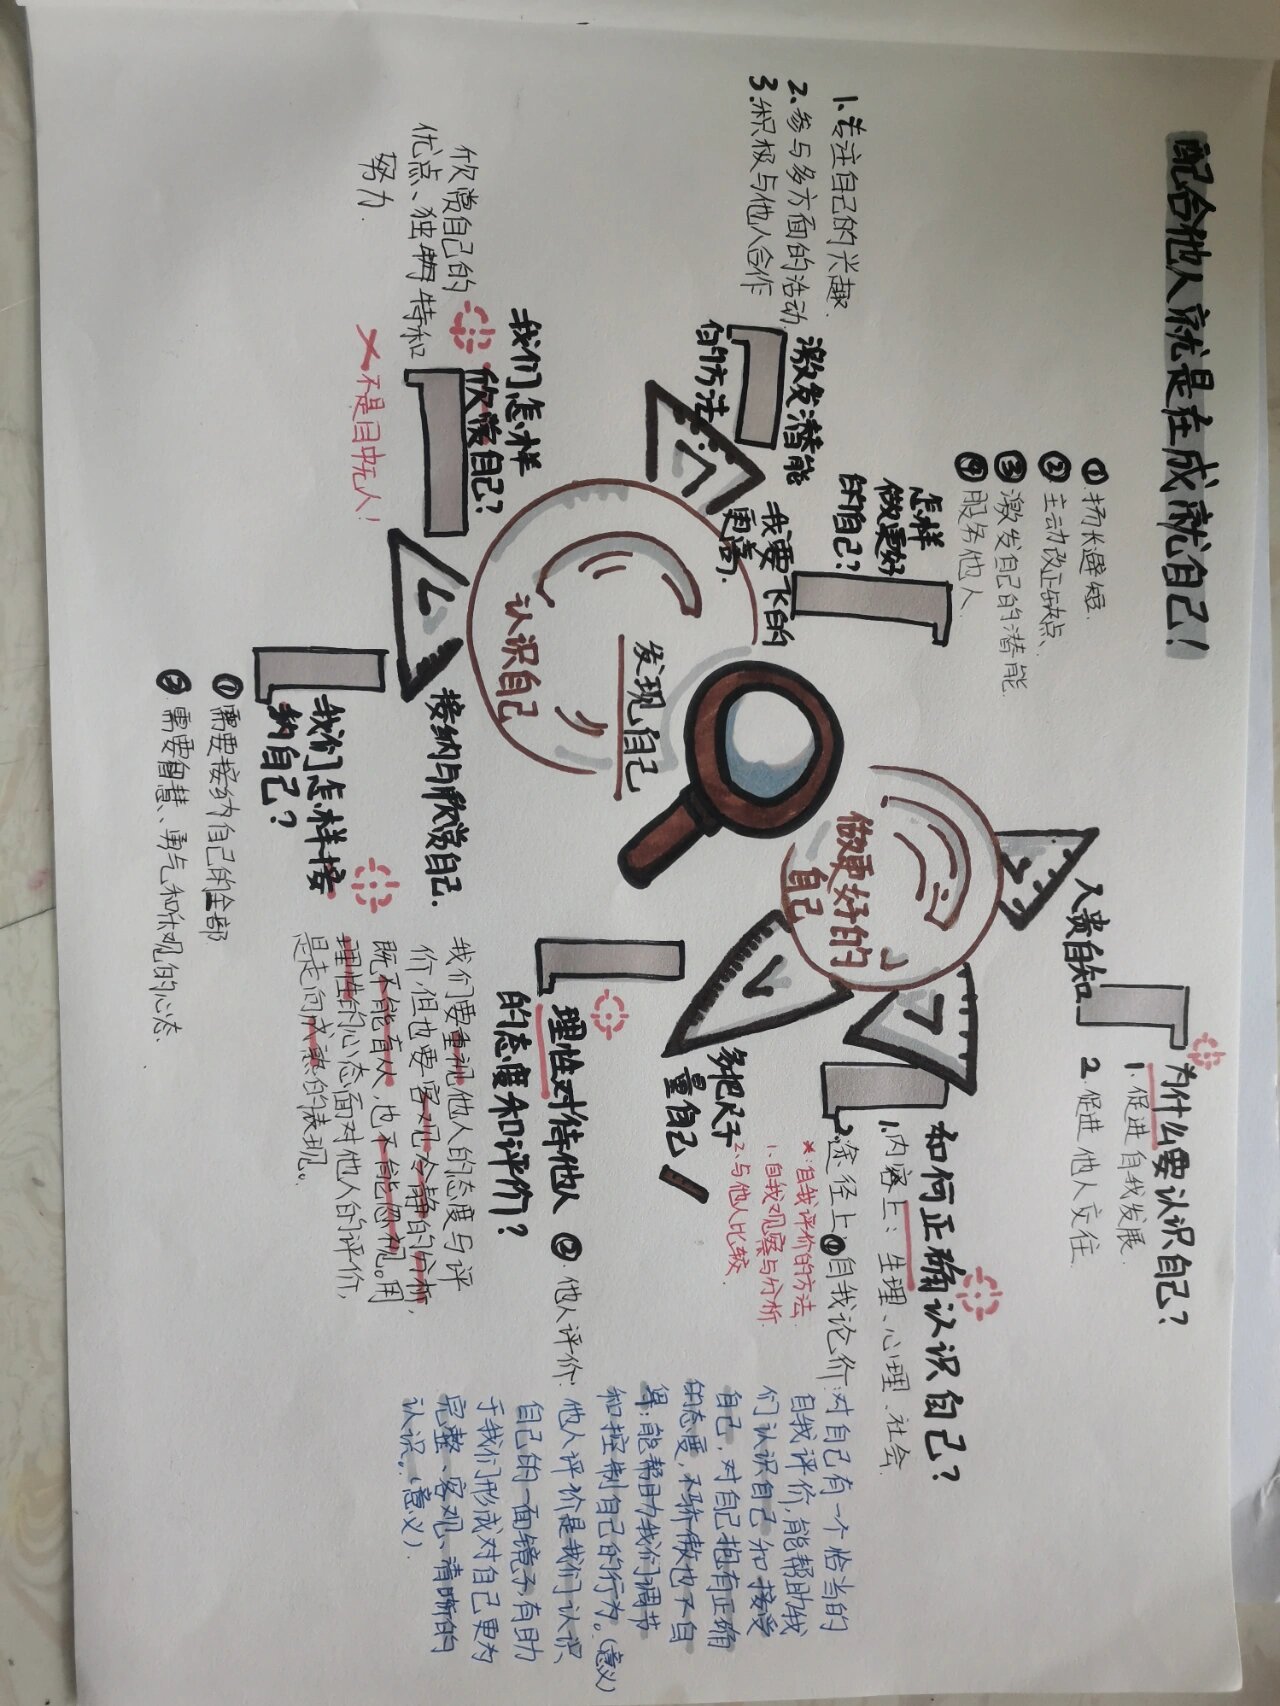 配合他人就是在成就自己!
1.专注自己的兴趣.
2.参与多方面的活动
3.积极与他人合作
激发潜能
的方法
怎样
做更好
的自己?
①扬长避短.
②主动改正缺点、
③激发自己的潜能
④服务他人
我要飞的
更高.
欣赏自己的
优点、独特和
努力.
×不是目中无人!
我们怎样
欣赏自己?
接纳与欣赏自己.
我们怎样接
纳自己?
①需要接纳自己的全部
②需要智慧、勇气和乐观的心态.
发现自己
认识自己
做更好的
自己
人贵自知
为什么要认识自己?
1.促进自我发展.
2.促进他人交往
如何正确认识自己?
1.内容上:生理、心理、社会.
2.途径上①自我论价:
对自己有一个恰当的
自我评价,能帮助我
们认识自己和接受
自己,对自己抱有正确
的态度,不骄傲也不自
卑;能帮助我们调节
和控制自己的行为。(意义)
×:自我评价的方法
1.自我观察与分析.
2.与他人比较.
②.他人评价:
他人评价是我们认识
自己的一面镜子,有助
于我们形成对自己更为
完整、客观、清晰的
认识。(意义).
多把尺子
量自己
理性对待他人
的态度和评价?
我们要重视他人的态度与评
价,但也要客观冷静的分析,
既不能盲从,也不能忽视。用
理性的心态面对他人的评价,
是走向成熟的表现。